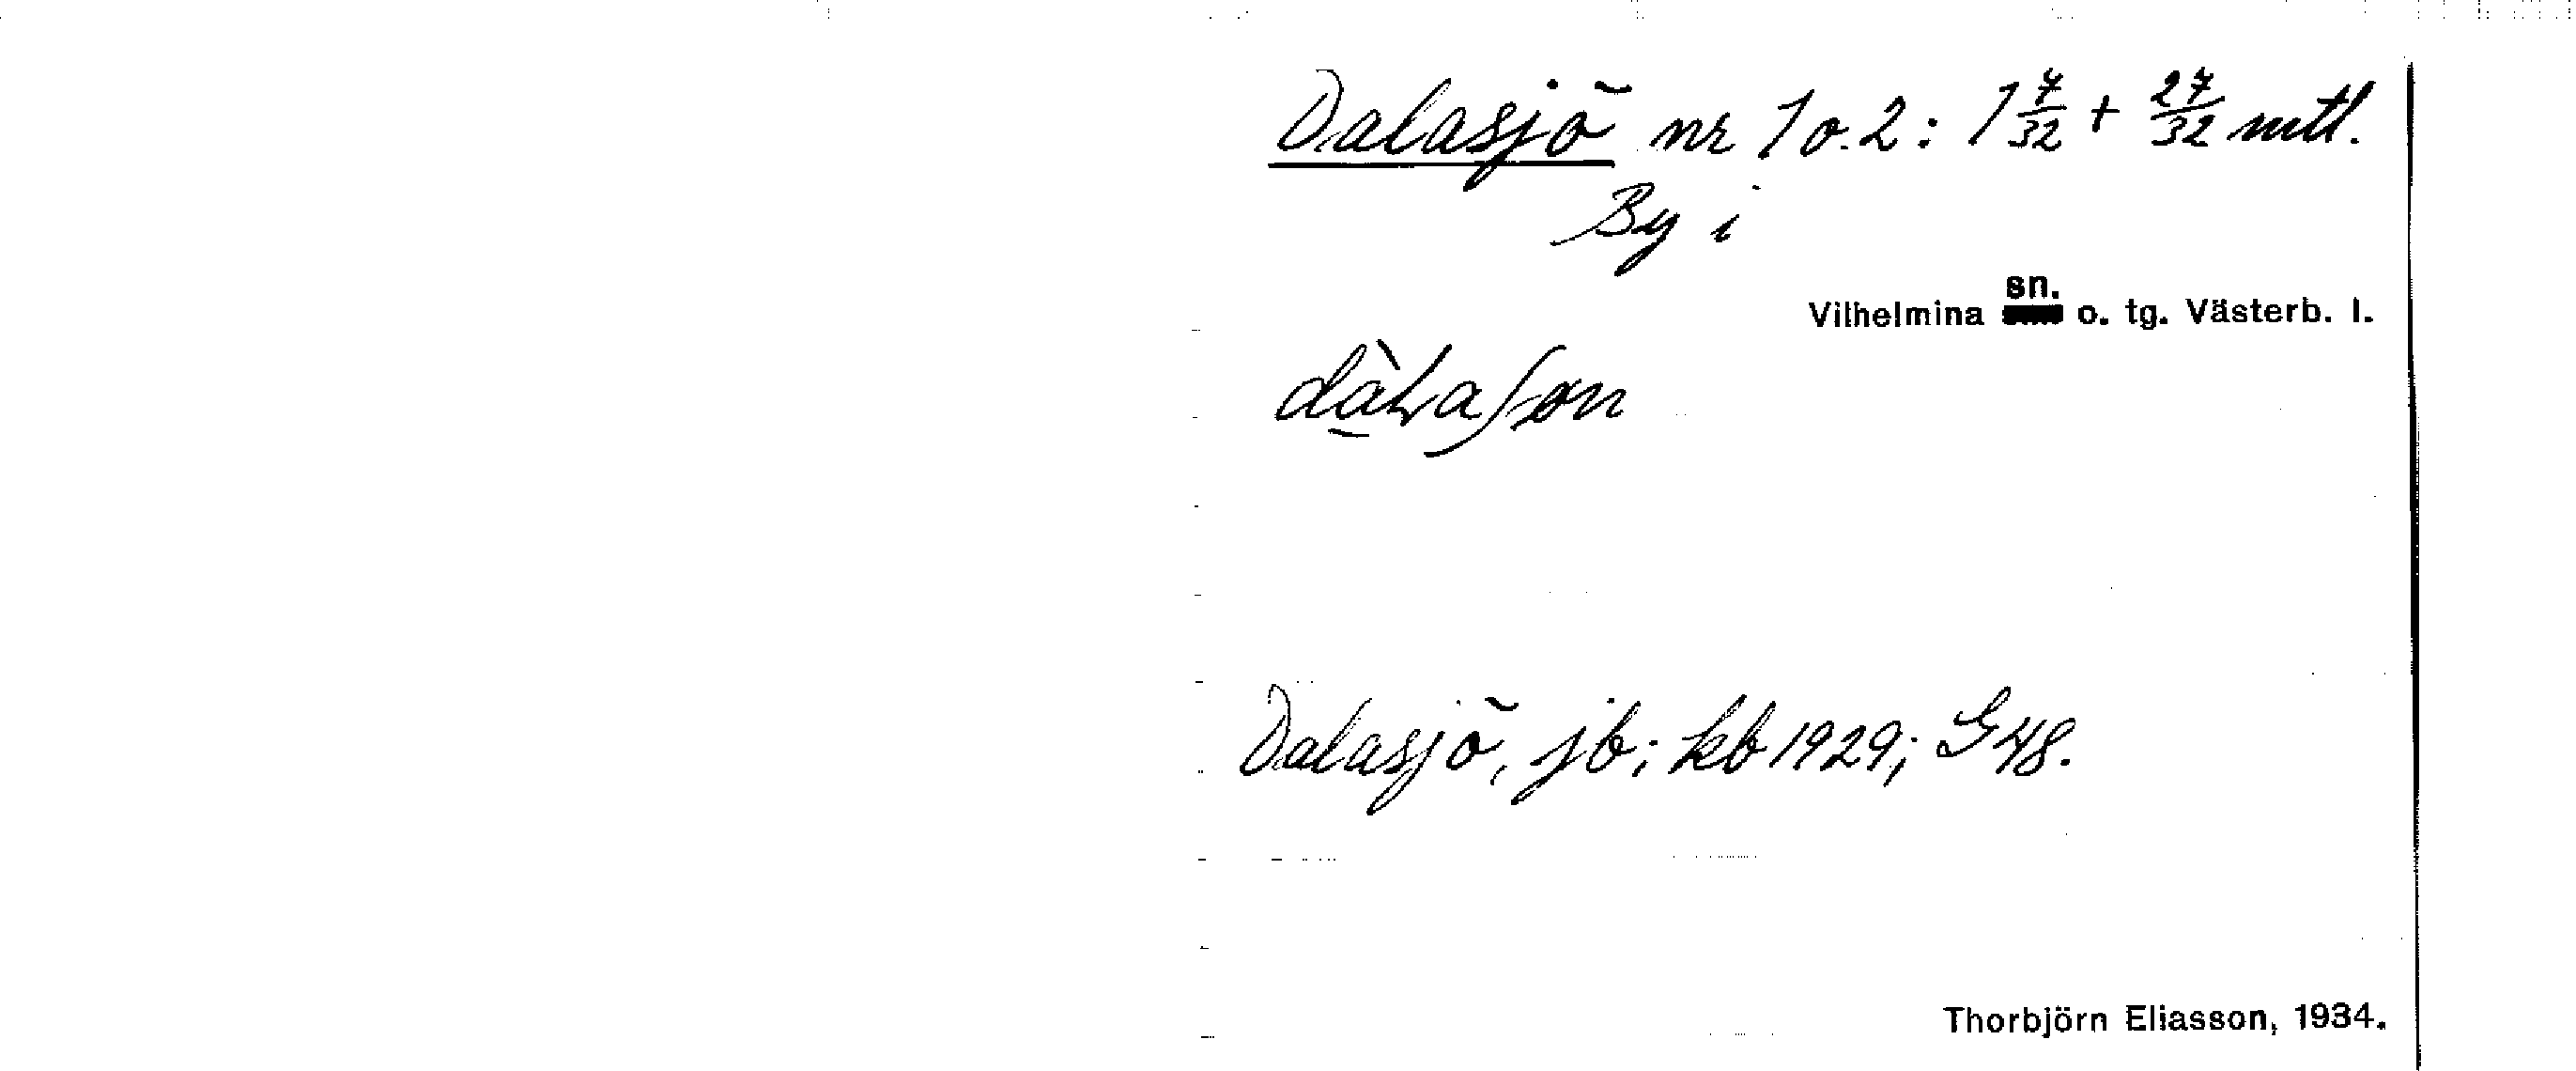 Dalasjö nr 1 o. 2: 1 7/32 + 27/32 mtl.
By i
sn.
Vilhelmina o. tg. Västerb. l.
Dalasjö, jb; kb 1929; G48.
Thorbjörn Eliasson, 1934.